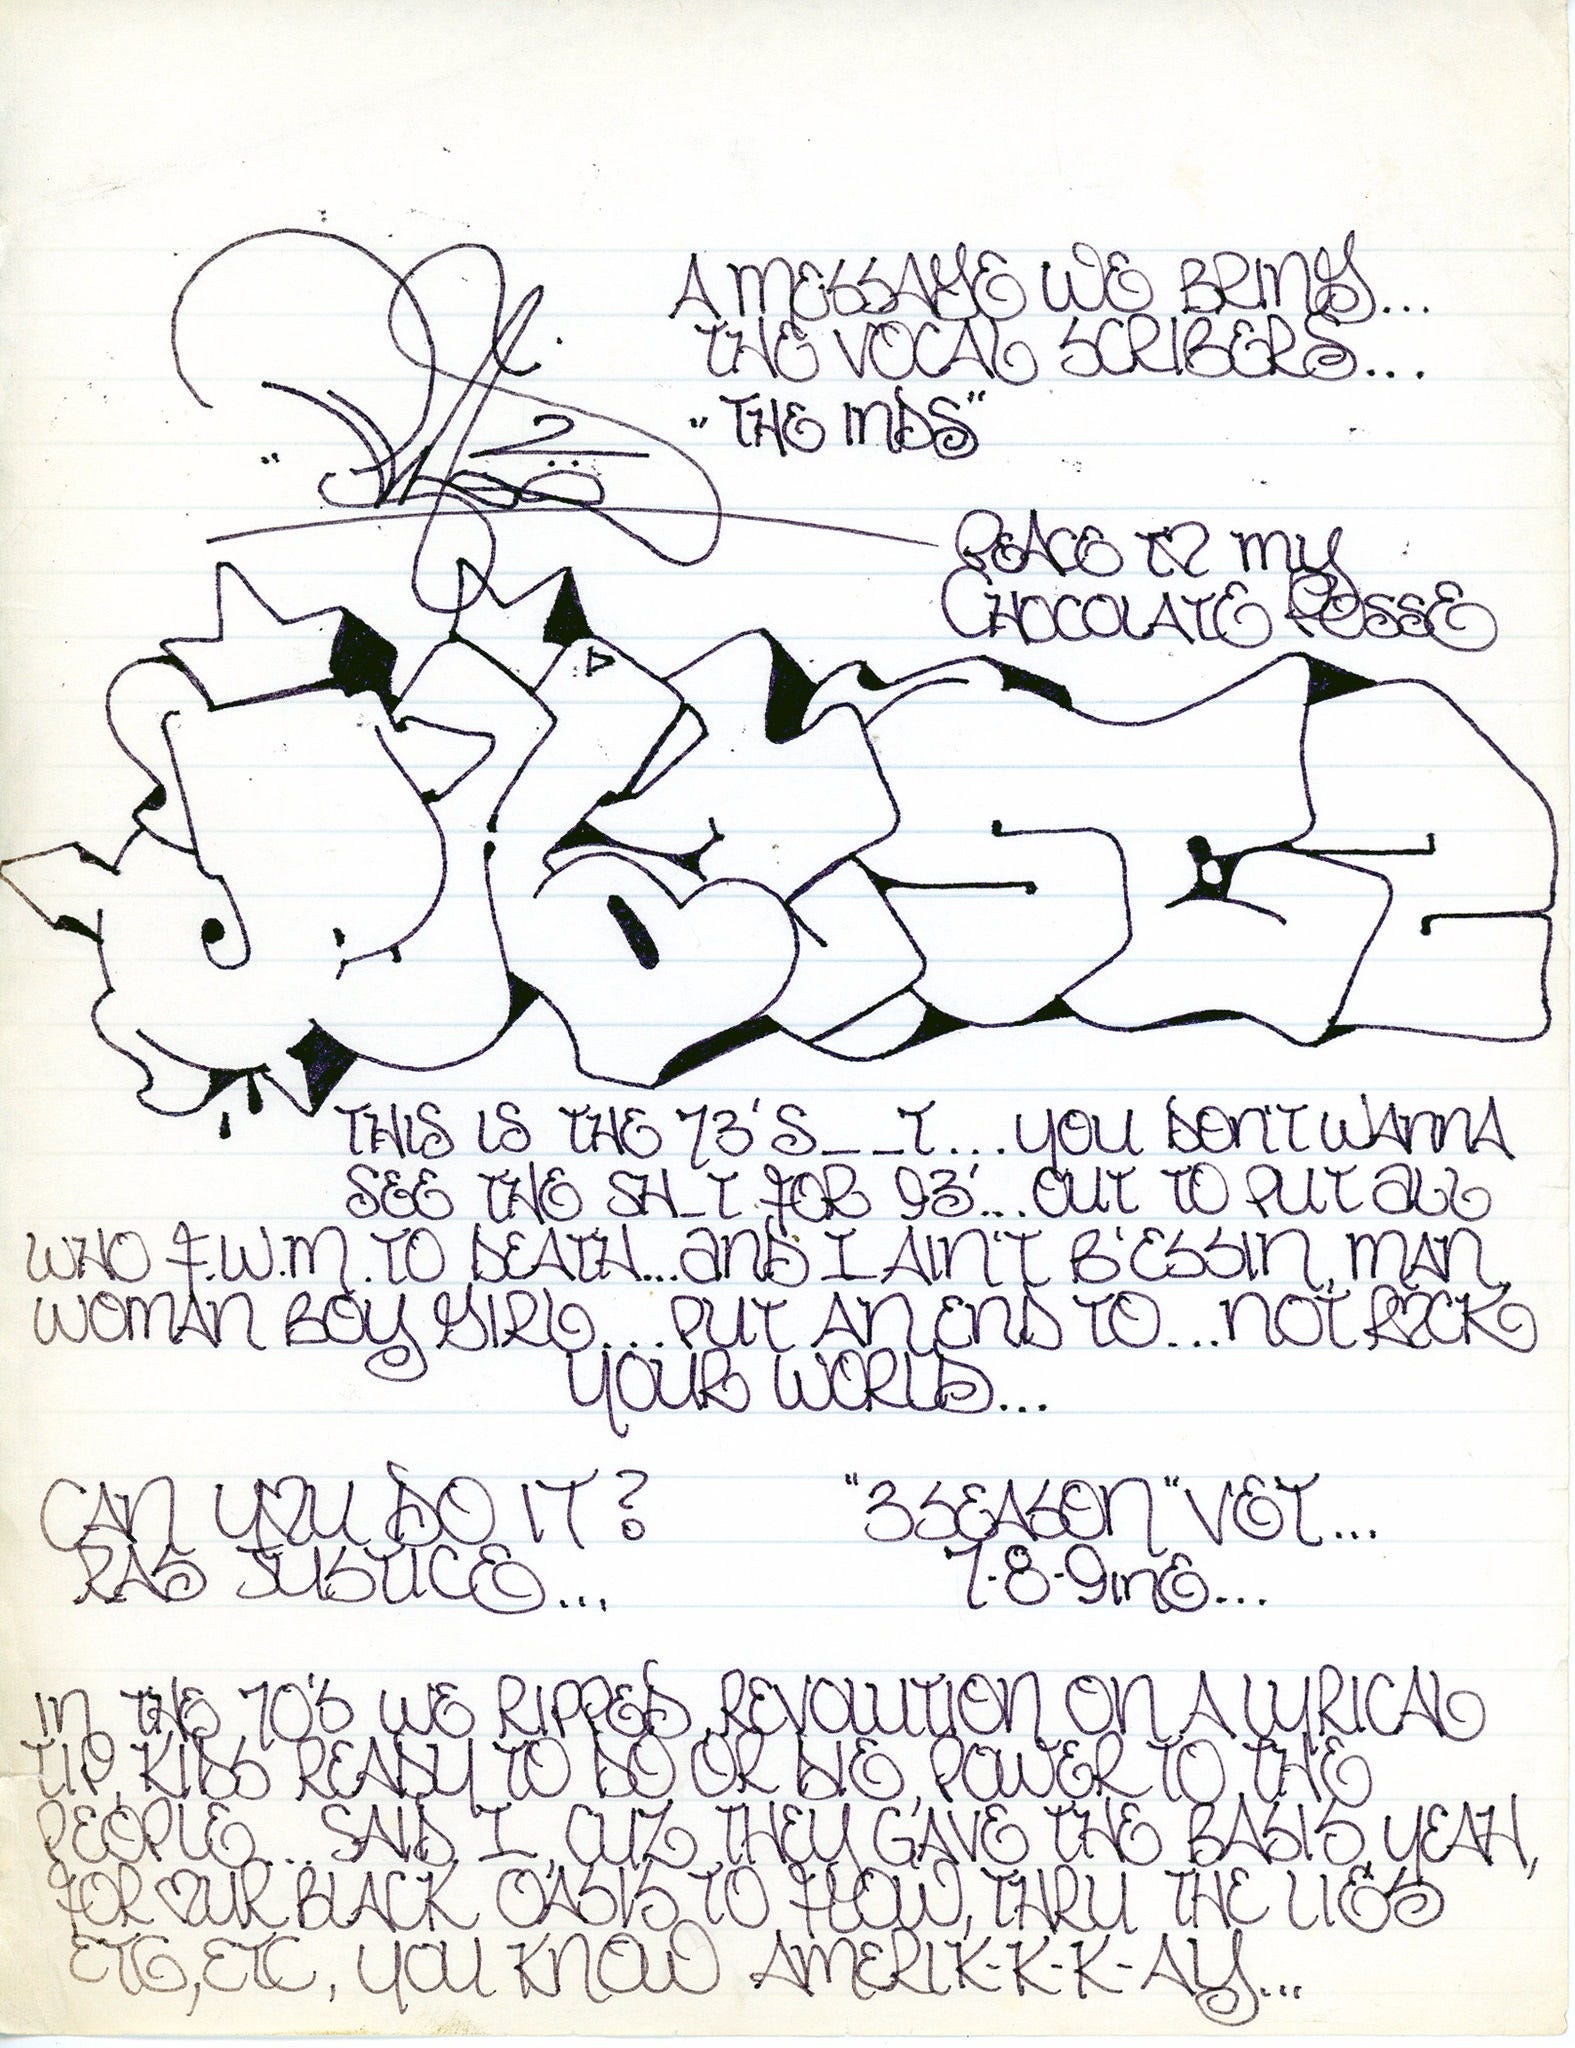 A MESSAGE WE BRING...
THE VOCAL SCRIBERS...
"THE INDS"
2
PEACE TO MY
CHOCOLATE POSSE
THIS IS THE 73'S__T...YOU DON'T WANNA
SEE THE SH_T FOR 93'...OUT TO PUT ALL
WHO F.W.M. TO DEATH...AND I AIN'T B'ESSIN, MAN,
WOMAN BOY GIRL....PUT AN END TO...NOT ROCK
YOUR WORLD...
CAN YOU DO IT?
RAS JUSTICE...
"3 SEASON" VET...
7-8-9INE...
IN THE 70'S WE RIPPED, REVOLUTION ON A LYRICAL
TIP, KIDS READY TO DO OR DIE, POWER TO THE
PEOPLE...SAID I, CUZ THEY GAVE THE BASIS, YEAH,
FOR OUR BLACK OASIS TO FLOW, THRU THE LIES
ETC, ETC, YOU KNOW AMERIK-K-K-AY...